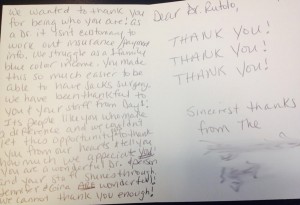 We wanted to thank you
for being who you are! As
a Dr. it isn't customary to
work out insurance/payment
info. We struggle as a
blue collar income. You made
this so much easier to be
able to have Jacks surgery.
We have been thankful to
you & your staff from Day 1.
It's people like you who make
a difference and we couldn't
let this opportunity to thank
you from our hearts & tell you
how much we appreciate you!
You are a wonderful Dr. & person
and your staff shined through
Jennifer & Gina are wonderful!
We cannot thank you enough!
Dear Dr. Rutolo,
THANK YOU!
THANK YOU!
THANK YOU!
Sincerest thanks
from The